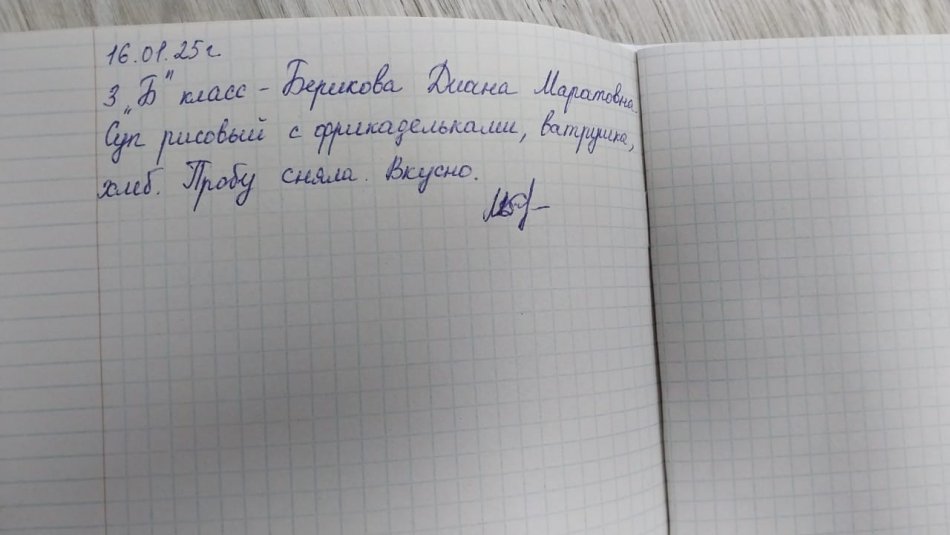 16.01.25г
3 „Б" класс - Берикова Диана Маратовна
Суп рисовый с фрикадельками, ватрушка,
хлеб. Пробу сняла. Вкусно.